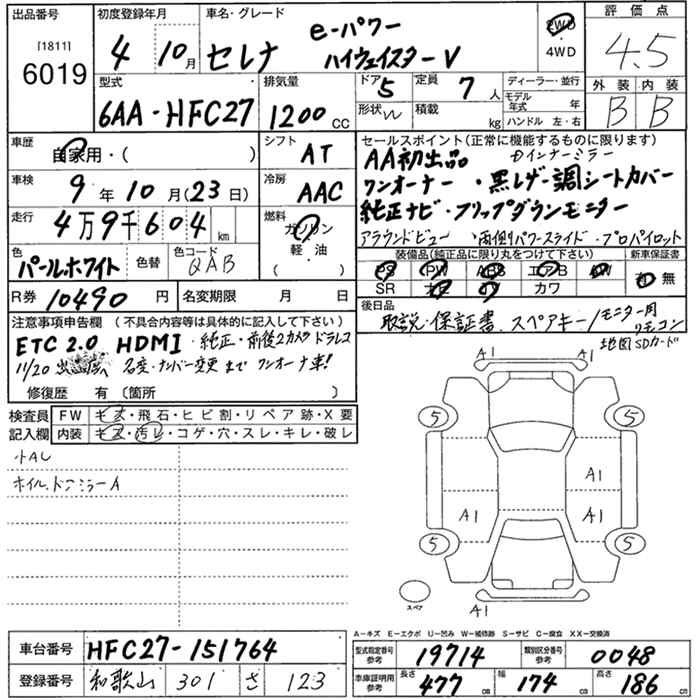 出品番号 初度登録年月 車名・グレード 評価点
[1811]
6019
4 10月 セレナ e-パワー
ハイウェイスターV
FWD
・
4WD
4.5
型式 排気量 ドア 定員 ディーラー・並行 外装 内装
6AA-HFC27 1200 CC 5 7人 モデル年式 年 B B
形状 W 積載 kg ハンドル 左・右
車歴 自家用・( ) シフト AT
車検 9年10月(23日) 冷房 AAC
走行 4万9千604km 燃料 ガソリン
軽・油
( )
色 パールホワイト 色替 色コード QAB
R券 10490円 名変期限 月 日
セールスポイント(正常に機能するものに限ります)
AA初出品 ・インナーミラー
ワンオーナー ・黒レザー調シートカバー
純正ナビ・フリップダウンモニター
アラウンドビュー ・両側パワースライド・プロパイロット
装備品(純正品に限り丸をつけて下さい) 新車保証書
PS PW ABS エアB AW 有・無
SR ナビ カワ
後日品
取説・保証書 スペアキー/モニター用リモコン
地図SDカード
注意事項申告欄 (不具合内容等は具体的に記入して下さい)
ETC2.0 HDMI ・純正・前後2カメラドラレコ
11/20 名変・ナンバー変更まで ワンオーナー車!
修復歴 有(箇所 )
検査員 FW キズ・飛石・ヒビ割・リペア跡・X要
記入欄 内装 キズ・汚レ・コゲ・穴・スレ・キレ・破レ
小AU
ホイル、ドアミラーA
A1 A1
5 5
A1
A1 A1
5 5
スペア
A1
A-キズ E-エクボ U-凹み W-補修跡 S-サビ C-腐食 XX-交換済
車台番号 HFC27-151764
登録番号 和歌山 301 さ 123
型式指定番号 参考 19714 類別区分番号 参考 0048
車庫証明用 参考 長さ 477cm 幅 174cm 高さ 186cm